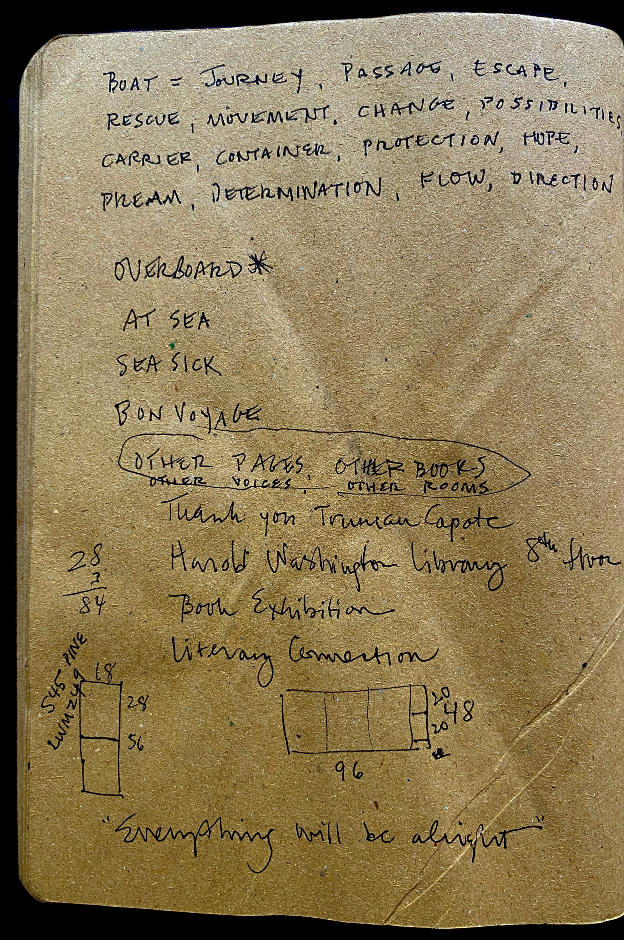 BOAT = JOURNEY, PASSAGE, ESCAPE,
RESCUE, MOVEMENT, CHANGE, POSSIBILITIES
CARRIER, CONTAINER, PROTECTION, HOPE,
DREAM, DETERMINATION, FLOW, DIRECTION
OVERBOARD*
AT SEA
SEA SICK
BON VOYAGE
OTHER PAGES, OTHER BOOKS
OTHER VOICES, OTHER ROOMS
Thank you Truman Capote
Harold Washington Library 8th floor
Book Exhibition
Literary Connection
28
3
84
545 PINE
18
28
56
20
20
48
96
"Everything will be alright"